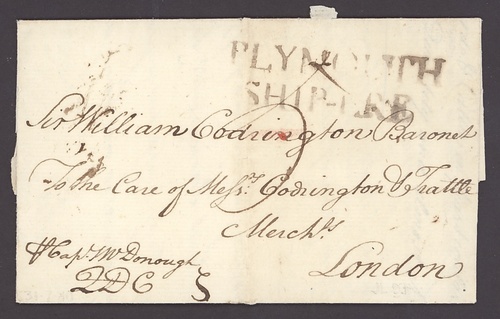 PLYMOUTH
SHIP-LRE
Sir William Codrington Baronet
To the Care of Messrs. Codrington & Trattle
Merchts
London
Capt. McDonough
2DC